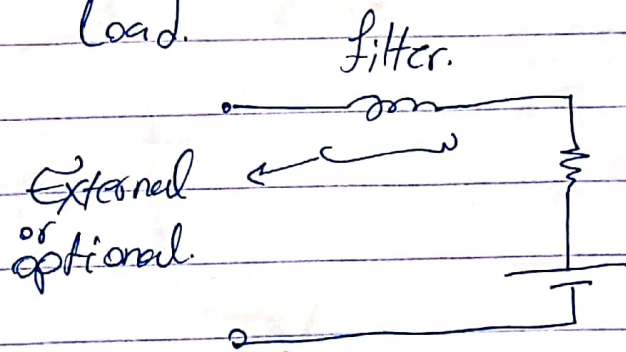 Load.
filter.
External
or
optional.